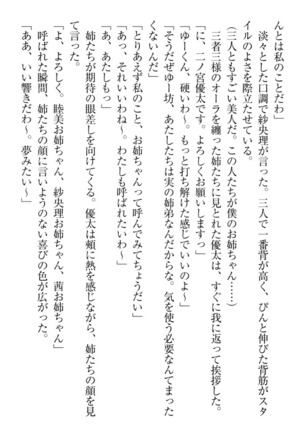 上は私のことだわ」
　淡々とした口調で紗央理が言った。三人で一番背が高く、ぴんと伸びた背筋がスタ
イルのよさを際立たせている。
（三人ともすごい美人だ。この人たちが僕のお姉ちゃん……）
　三者三様のオーラを纏った姉たちに見とれた優太は、すぐに我に返って挨拶した。
「に、二ノ宮優太です。よろしくお願いしますっ」
「ゆーくん、硬いわ～。もっと打ち解けた感じでいいのよ～」
「そうだぜゆー坊、あたしたちは実の姉弟なんだからな。気を使う必要なんてまった
くないんだ」
「とりあえず私のこと、お姉ちゃんって呼んでみてちょうだい」
「あっ、それいいわね～。わたしも呼ばれたいわ～」
「あ、あたしもっ」
　姉たちが期待の眼差しを向けてくる。優太は頬に熱を感じながら、姉たちの顔を見
て言った。
「よ、よろしく。睦美お姉ちゃん、紗央理お姉ちゃん、茜お姉ちゃん」
　呼ばれた瞬間、姉たちの顔に言いようのない喜びの色が広がった。
「ああ、いい響きだわ～。夢みたい～」